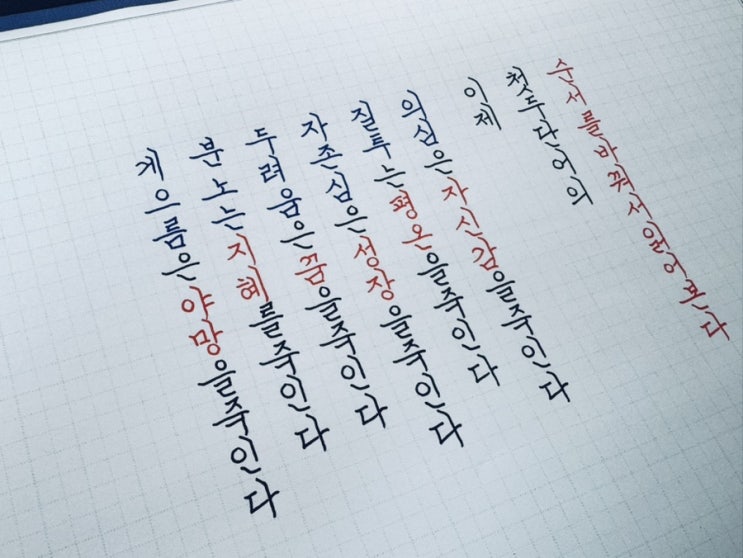 게으름은 야망을 죽인다
분노는 지혜를 죽인다
두려움은 꿈을 죽인다
자존심은 성장을 죽인다
질투는 평온을 죽인다
의심은 자신감을 죽인다
이제
첫 두 단어의
순서를 바꿔서 읽어본다